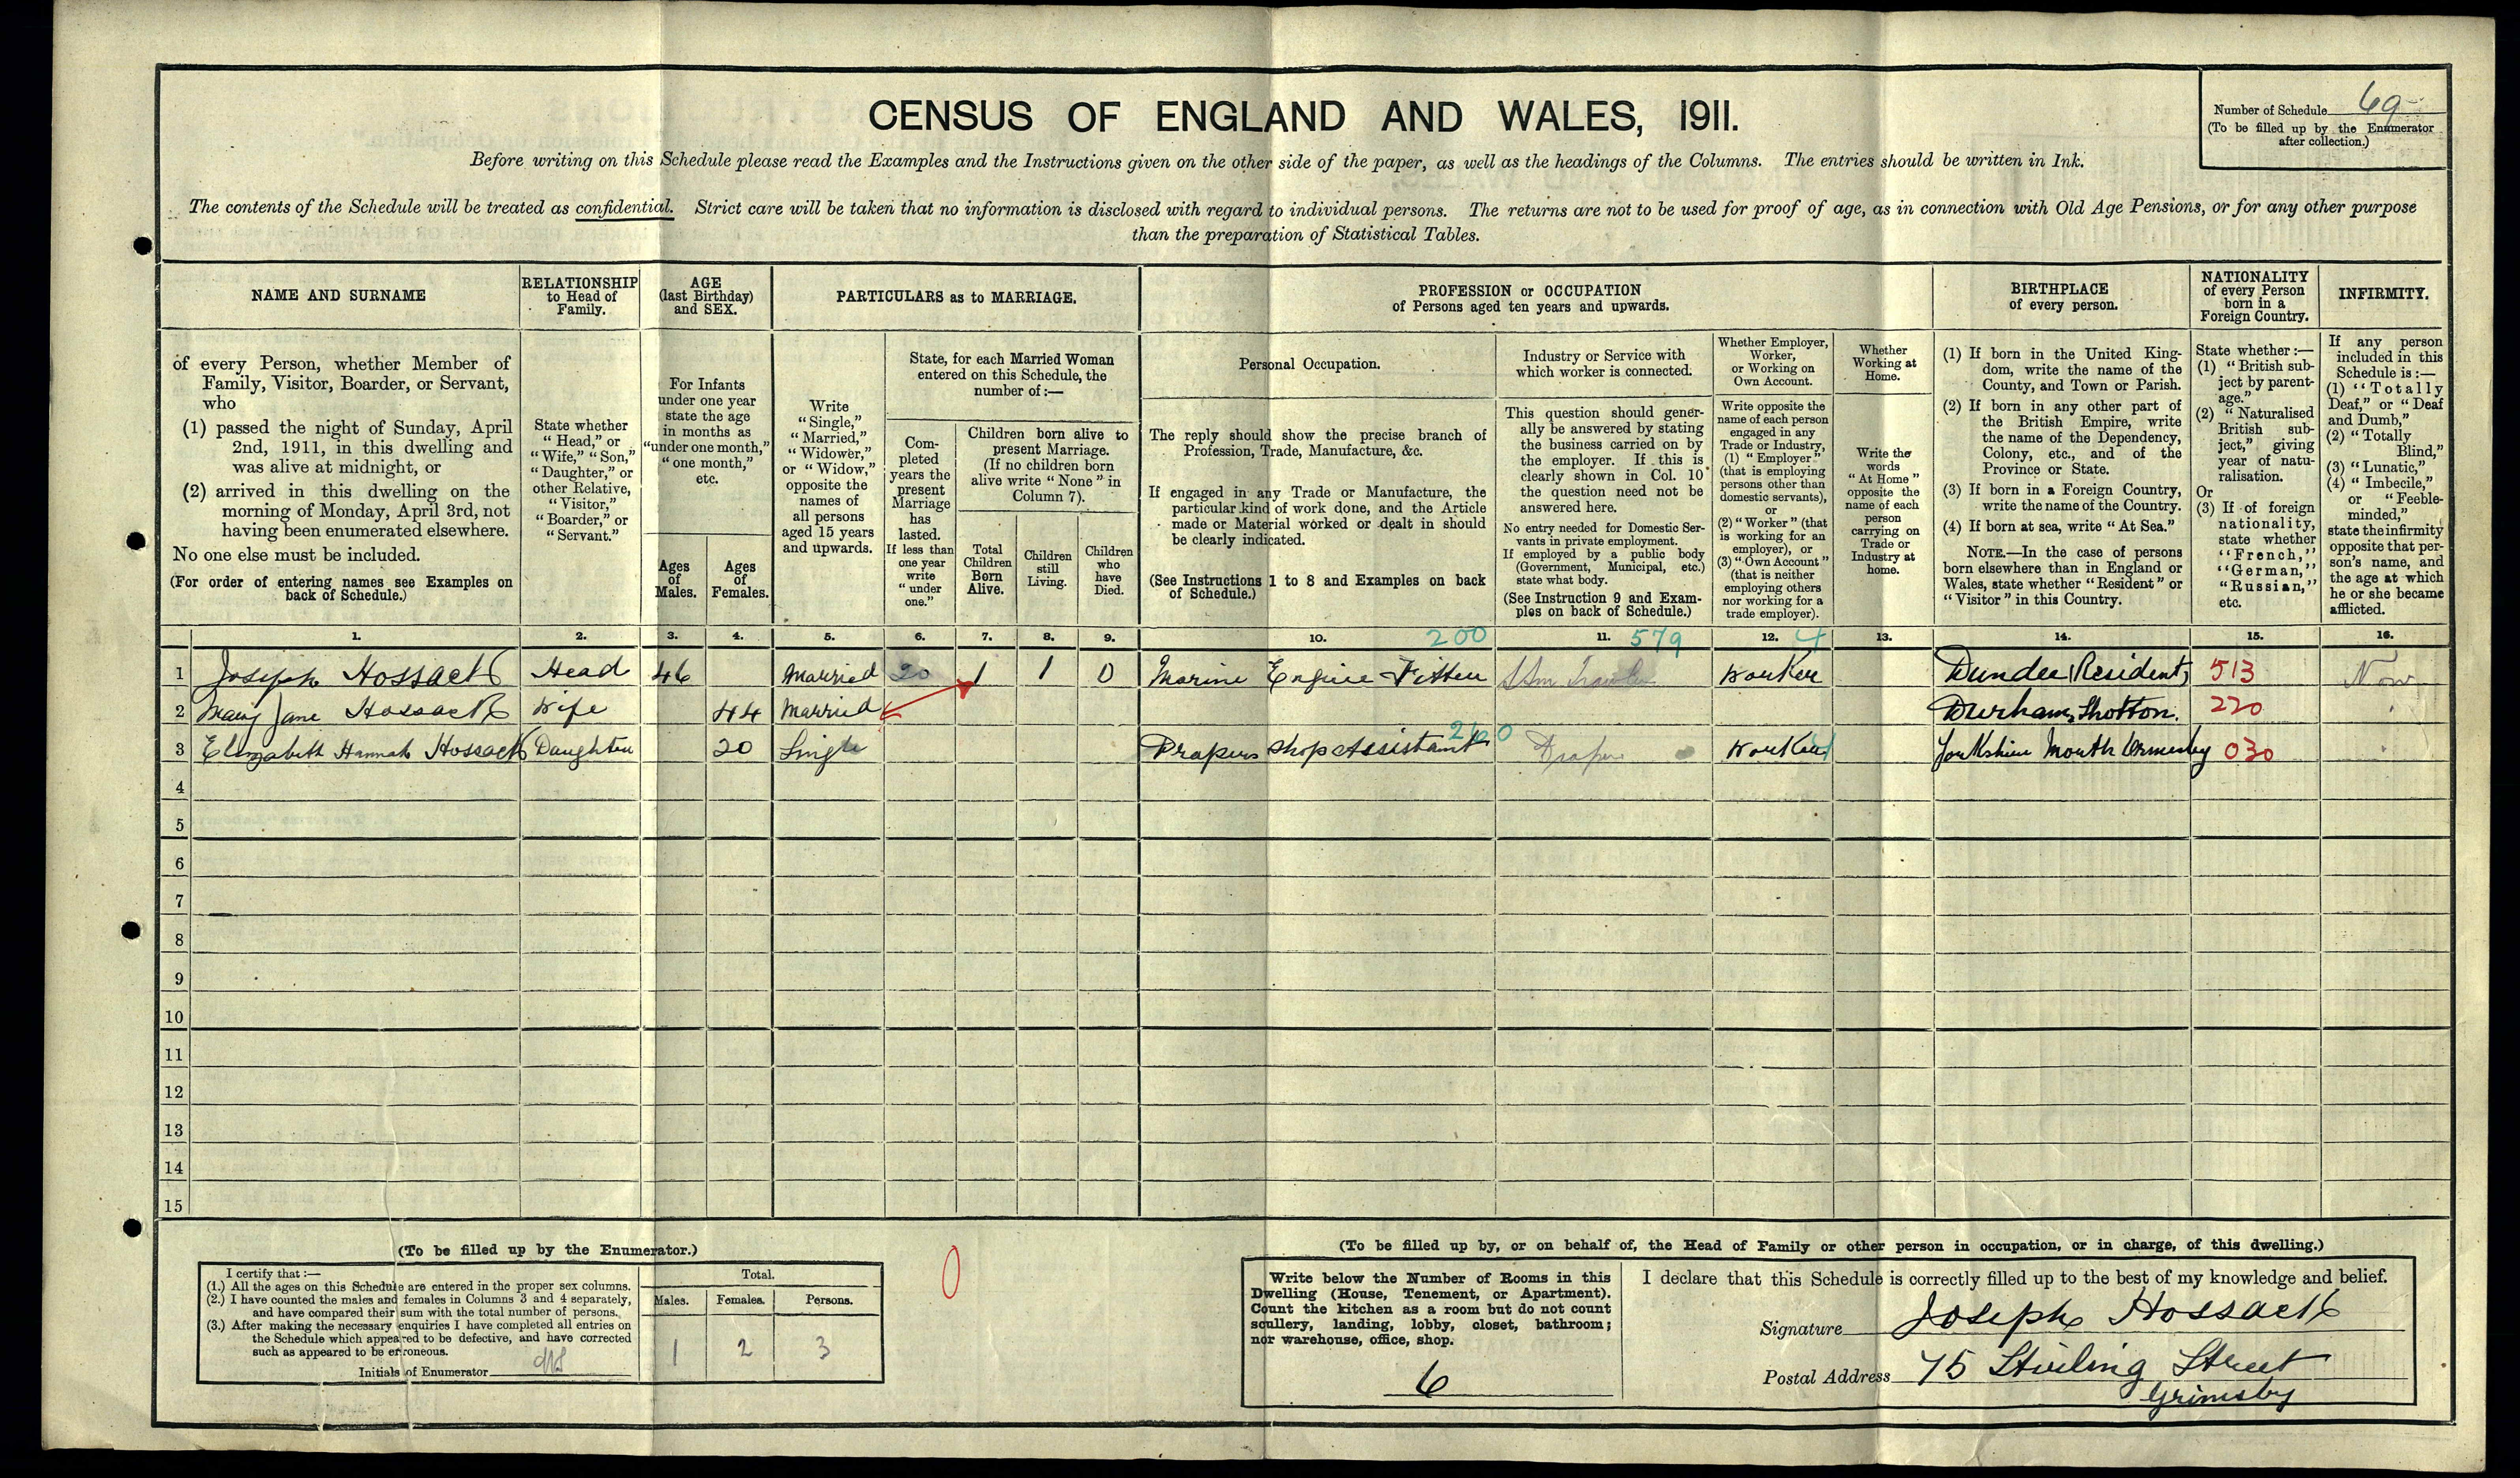 CENSUS OF ENGLAND AND WALES, 1911.
Number of Schedule 69
(To be filled up by the Enumerator
after collection.)
Before writing on this Schedule please read the Examples and the Instructions given on the other side of the paper, as well as the headings of the Columns. The entries should be written in Ink.
The contents of the Schedule will be treated as confidential. Strict care will be taken that no information is disclosed with regard to individual persons. The returns are not to be used for proof of age, as in connection with Old Age Pensions, or for any other purpose
than the preparation of Statistical Tables.
NAME AND SURNAME
of every Person, whether Member of
Family, Visitor, Boarder, or Servant,
who
(1) passed the night of Sunday, April
2nd, 1911, in this dwelling and
was alive at midnight, or
(2) arrived in this dwelling on the
morning of Monday, April 3rd, not
having been enumerated elsewhere.
No one else must be included.
(For order of entering names see Examples on
back of Schedule.)
RELATIONSHIP
to Head of
Family.
State whether
"Head," or
"Wife," "Son,"
"Daughter," or
other Relative,
"Visitor,"
"Boarder," or
"Servant."
AGE
(last Birthday)
and SEX.
For Infants
under one year
state the age
in months as
"under one month,"
"one month,"
etc.
Ages
of
Males.
Ages
of
Females.
PARTICULARS as to MARRIAGE.
Write
"Single,"
"Married,"
"Widower,"
or "Widow,"
opposite the
names of
all persons
aged 15 years
and upwards.
State, for each Married Woman
entered on this Schedule, the
number of:—
Com-
pleted
years the
present
Marriage
has
lasted.
If less than
one year
write
"under
one."
Children born alive to
present Marriage.
(If no children born
alive write "None" in
Column 7).
Total
Children
Born
Alive.
Children
still
Living.
Children
who
have
Died.
PROFESSION or OCCUPATION
of Persons aged ten years and upwards.
Personal Occupation.
The reply should show the precise branch of
Profession, Trade, Manufacture, &c.
If engaged in any Trade or Manufacture, the
particular kind of work done, and the Article
made or Material worked or dealt in should
be clearly indicated.
(See Instructions 1 to 8 and Examples on back
of Schedule.)
Industry or Service with
which worker is connected.
This question should gener-
ally be answered by stating
the business carried on by
the employer. If this is
clearly shown in Col. 10
the question need not be
answered here.
No entry needed for Domestic Ser-
vants in private employment.
If employed by a public body
(Government, Municipal, etc.)
state what body.
(See Instruction 9 and Exam-
ples on back of Schedule.)
Whether Employer,
Worker,
or Working on
Own Account.
Write opposite the
name of each person
engaged in any
Trade or Industry,
(1) "Employer"
(that is employing
persons other than
domestic servants),
or
(2) "Worker" (that
is working for an
employer), or
(3) "Own Account"
(that is neither
employing others
nor working for a
trade employer).
Whether
Working at
Home.
Write the
words
"At Home"
opposite the
name of each
person
carrying on
Trade or
Industry at
home.
BIRTHPLACE
of every person.
(1) If born in the United King-
dom, write the name of the
County, and Town or Parish.
(2) If born in any other part of
the British Empire, write
the name of the Dependency,
Colony, etc., and of the
Province or State.
(3) If born in a Foreign Country,
write the name of the Country.
(4) If born at sea, write "At Sea."
NOTE.—In the case of persons
born elsewhere than in England or
Wales, state whether "Resident" or
"Visitor" in this Country.
NATIONALITY
of every Person
born in a
Foreign Country.
State whether:—
(1) "British sub-
ject by parent-
age."
(2) "Naturalised
British sub-
ject," giving
year of natu-
ralisation.
Or
(3) If of foreign
nationality,
state whether
"French,"
"German,"
"Russian,"
etc.
INFIRMITY.
If any person
included in this
Schedule is:—
(1) "Totally
Deaf," or "Deaf
and Dumb,"
(2) "Totally
Blind,"
(3) "Lunatic,"
(4) "Imbecile,"
or "Feeble-
minded,"
state the infirmity
opposite that per-
son's name, and
the age at which
he or she became
afflicted.
1. 2. 3. 4. 5. 6. 7. 8. 9. 10. 200 11. 579 12. 4 13. 14. 15. 16.
1 Joseph Hossack Head 46 Married 20 1 1 0 Marine Engine Fitter Worker Dundee (Resident) 513
2 Mary Jane Hossack Wife 44 Married Durham, Shotton. 220
3 Elizabeth Hannah Hossack Daughter 20 Single Drapers Shop Assistant 260 Draper Worker Yorkshire North Ormesby 030
4
5
6
7
8
9
10
11
12
13
14
15
(To be filled up by the Enumerator.)
I certify that:—
(1.) All the ages on this Schedule are entered in the proper sex columns.
(2.) I have counted the males and females in Columns 3 and 4 separately,
and have compared their sum with the total number of persons.
(3.) After making the necessary enquiries I have completed all entries on
the Schedule which appeared to be defective, and have corrected
such as appeared to be erroneous.
Initials of Enumerator
Total.
Males. Females. Persons.
1 2 3
0
(To be filled up by, or on behalf of, the Head of Family or other person in occupation, or in charge, of this dwelling.)
Write below the Number of Rooms in this
Dwelling (House, Tenement, or Apartment).
Count the kitchen as a room but do not count
scullery, landing, lobby, closet, bathroom;
nor warehouse, office, shop.
6
I declare that this Schedule is correctly filled up to the best of my knowledge and belief.
Signature Joseph Hossack
Postal Address 75 Stirling Street
Grimsby